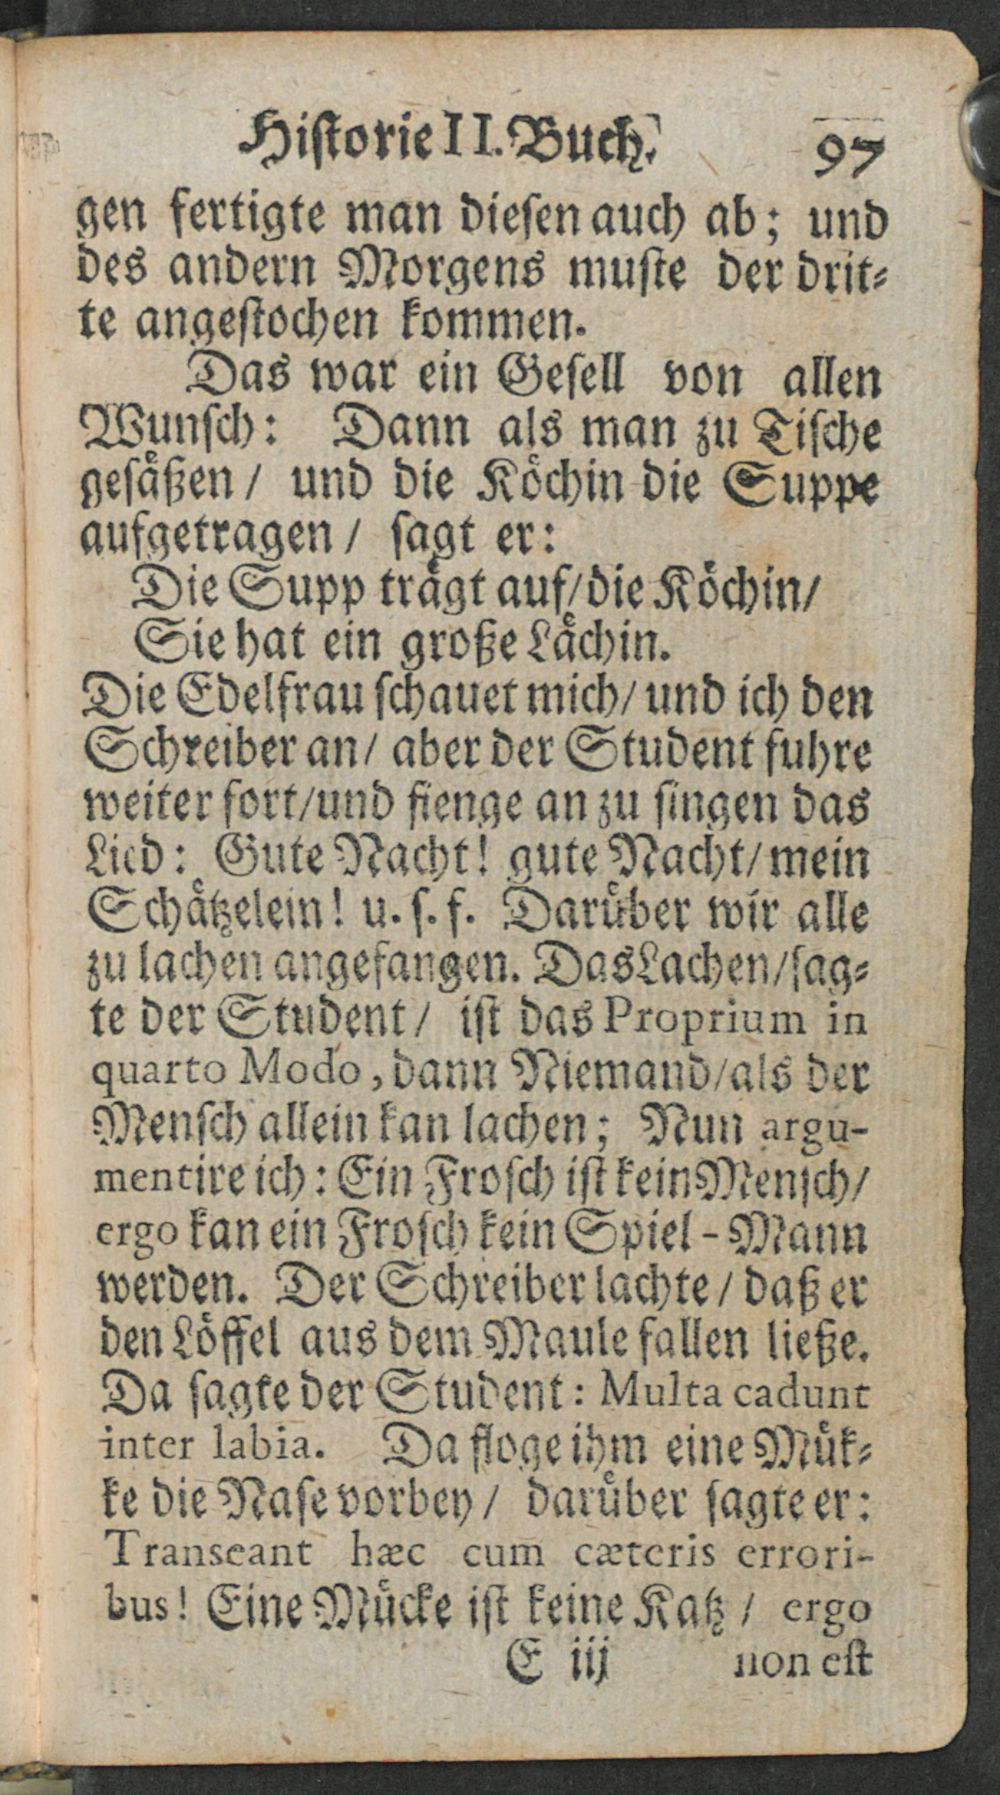 Historie II. Buch. 97
gen fertigte man diesen auch ab; und
des andern Morgens muste der drit-
te angestochen kommen.
Das war ein Gesell von allen
Wunsch: Dann als man zu Tische
gesåßen / und die Kôchin die Suppe
aufgetragen / sagt er:
Die Supp trågt auf / die Kôchin /
Sie hat ein große Låchin.
Die Edelfrau schauet mich / und ich den
Schreiber an / aber der Student fuhre
weiter fort / und fienge an zu singen das
Lied: Gute Nacht! gute Nacht / mein
Schåtzelein! u. s. f. Darůber wir alle
zu lachen angefangen. Das Lachen / sag-
te der Student / ist das Proprium in
quarto Modo, dann Niemand / als der
Mensch allein kan lachen; Nun argu-
mentire ich: Ein Frosch ist kein Mensch /
ergo kan ein Frosch kein Spiel-Mann
werden. Der Schreiber lachte / daß er
den Lôffel aus dem Maule fallen ließe.
Da sagte der Student: Multa cadunt
inter labia. Da floge ihm eine Můk-
ke die Nase vorbey / darůber sagte er:
Transeant hæc cum cæteris errori-
bus! Eine Můcke ist keine Katz / ergo
E iij non est